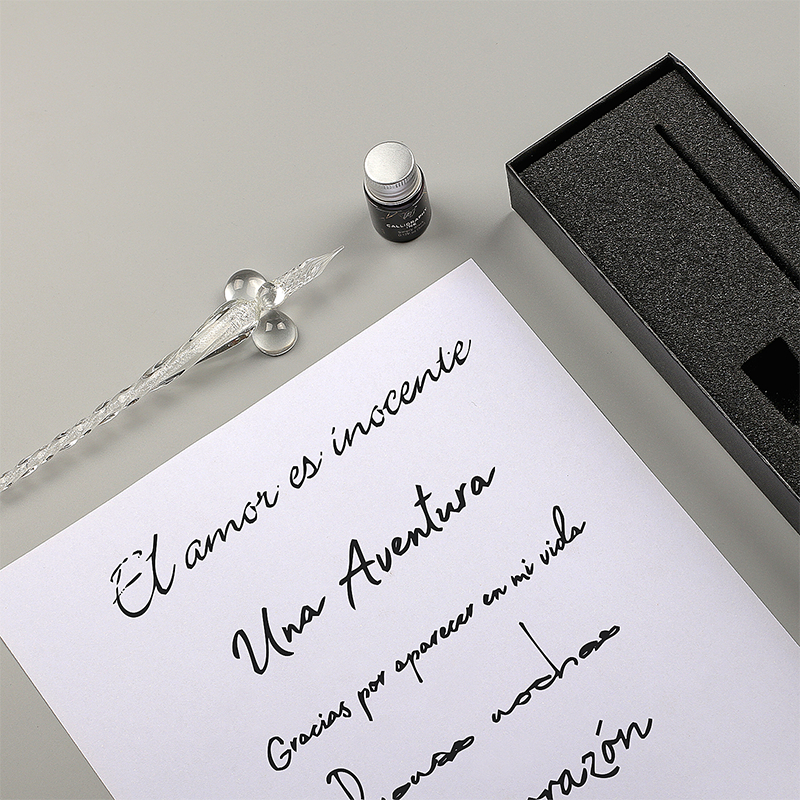 CALLIGRAPHY
El amor es inocente
Una Aventura
Gracias por aparecer en mi vida
noches